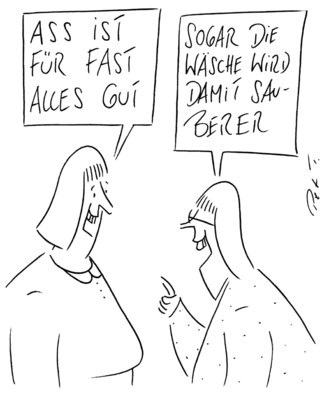 ASS IST
FÜR FAST
ALLES GUT
SOGAR DIE
WÄSCHE WIRD
DAMIT SAU-
BERER